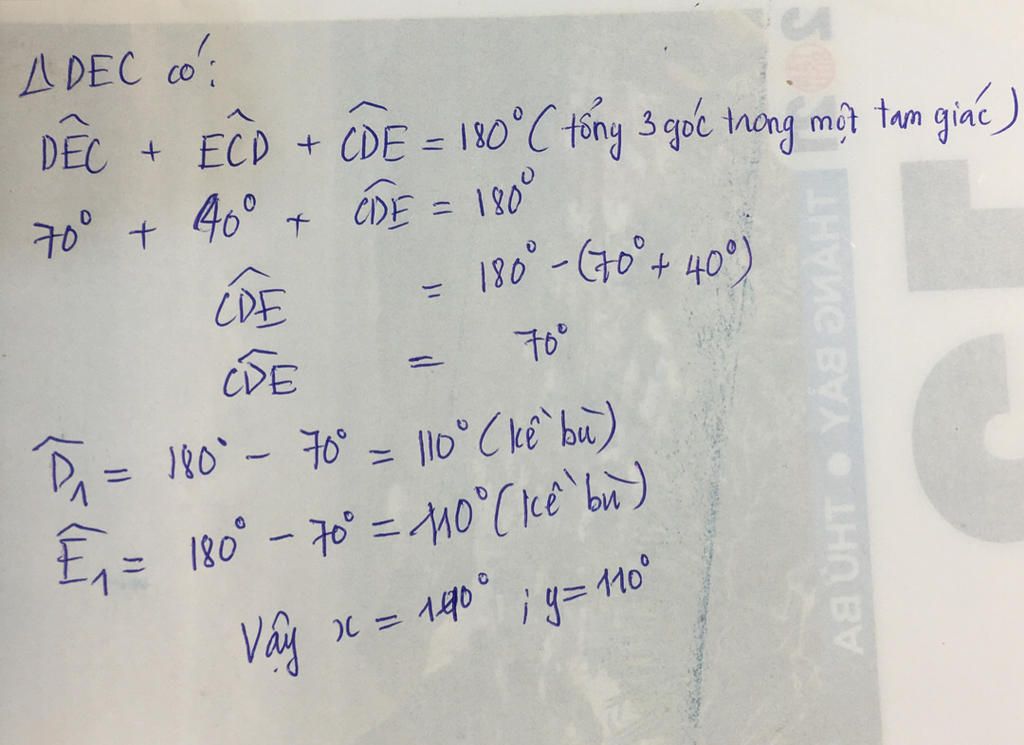 Δ DEC có:
D̂EC + ÊCD + ĈDE = 180° (tổng 3 góc trong một tam giác)
70° + 40° + ĈDE = 180°
ĈDE = 180° - (70° + 40°)
ĈDE = 70°
D̂₁ = 180° - 70° = 110° (kề bù)
Ê₁ = 180° - 70° = 110° (kề bù)
Vậy x = 110° ; y = 110°
THÁNG BẢY • THỨ BA